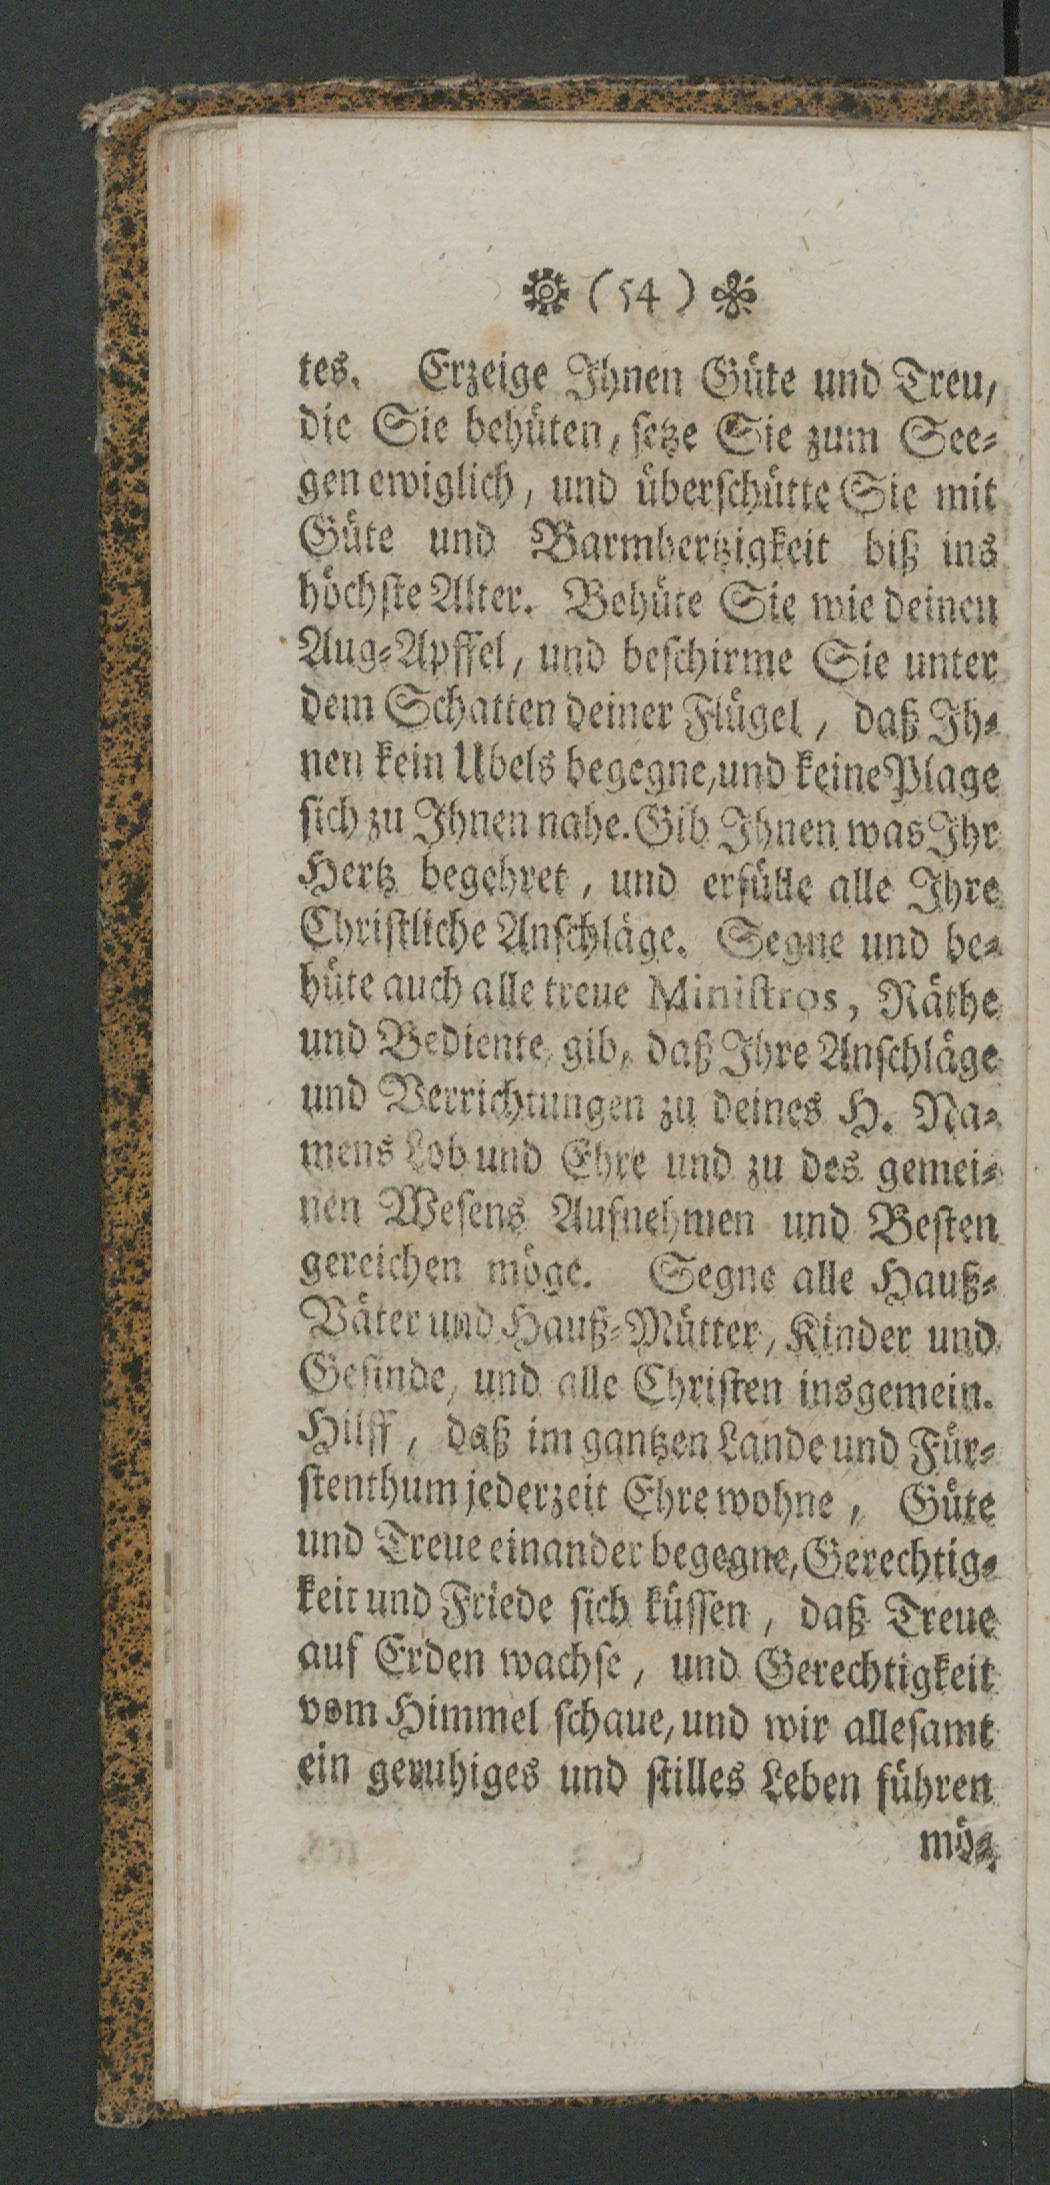 (54)
tes. Erzeige Ihnen Güte und Treu,
die Sie behüten, setze Sie zum See-
gen ewiglich, und überschütte Sie mit
Güte und Barmhertzigkeit biß ins
höchste Alter. Behüte Sie wie deinen
Aug-Apffel, und beschirme Sie unter
dem Schatten deiner Flügel, daß Ih-
nen kein Ubels begegne, und keine Plage
sich zu Ihnen nahe. Gib Ihnen was Ihr
Hertz begehret, und erfülle alle Ihre
Christliche Anschläge. Segne und be-
hüte auch alle treue Ministros, Räthe
und Bediente, gib, daß Ihre Anschläge
und Verrichtungen zu deines H. Na-
mens Lob und Ehre und zu des gemei-
nen Wesens Aufnehmen und Besten
gereichen möge. Segne alle Hauß-
Väter und Hauß-Mütter, Kinder und
Gesinde, und alle Christen insgemein.
Hilff, daß im gantzen Lande und Für-
stenthum jederzeit Ehre wohne, Güte
und Treue einander begegne, Gerechtig-
keit und Friede sich küssen, daß Treue
auf Erden wachse, und Gerechtigkeit
vom Himmel schaue, und wir allesamt
ein geruhiges und stilles Leben führen
mö-